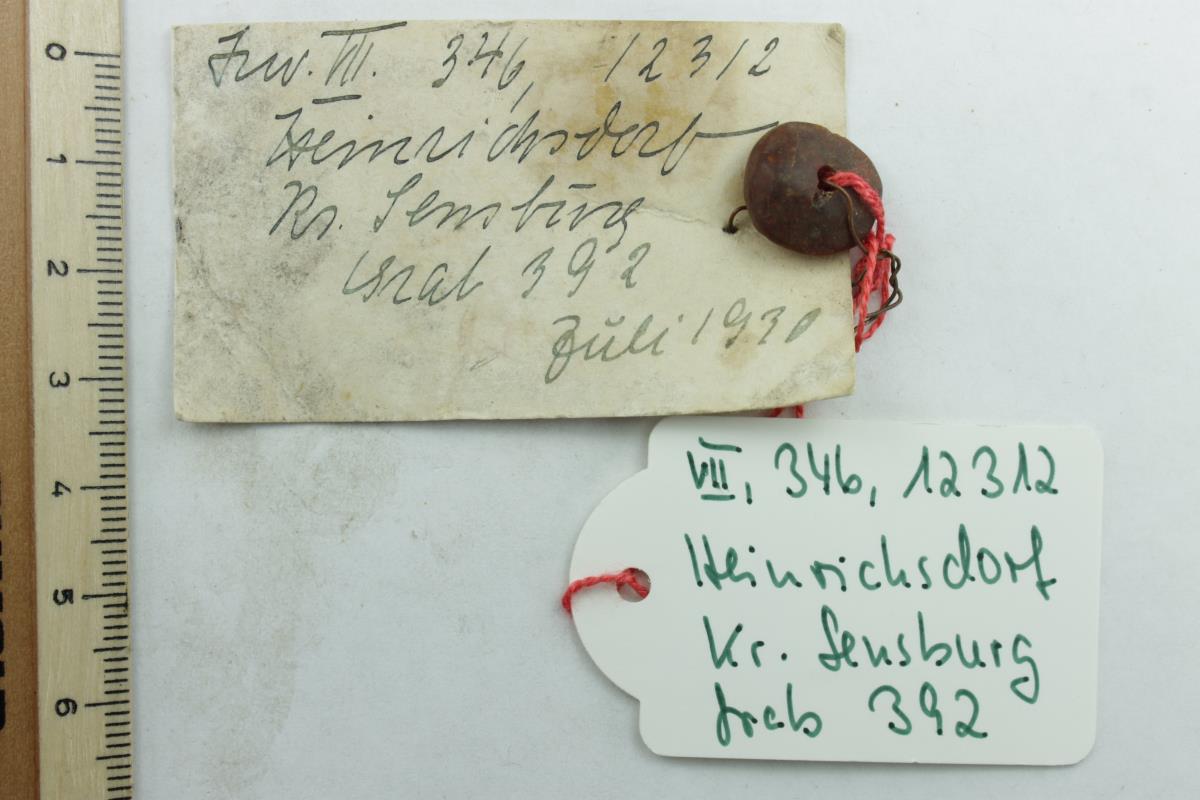 Inv. VII. 346, 12312
Heinrichsdorf
Kr. Sensburg
Grab 392
Juli 1930
VII, 346, 12312
Heinrichsdorf
Kr. Sensburg
Grab 392
0
1
2
3
4
5
6